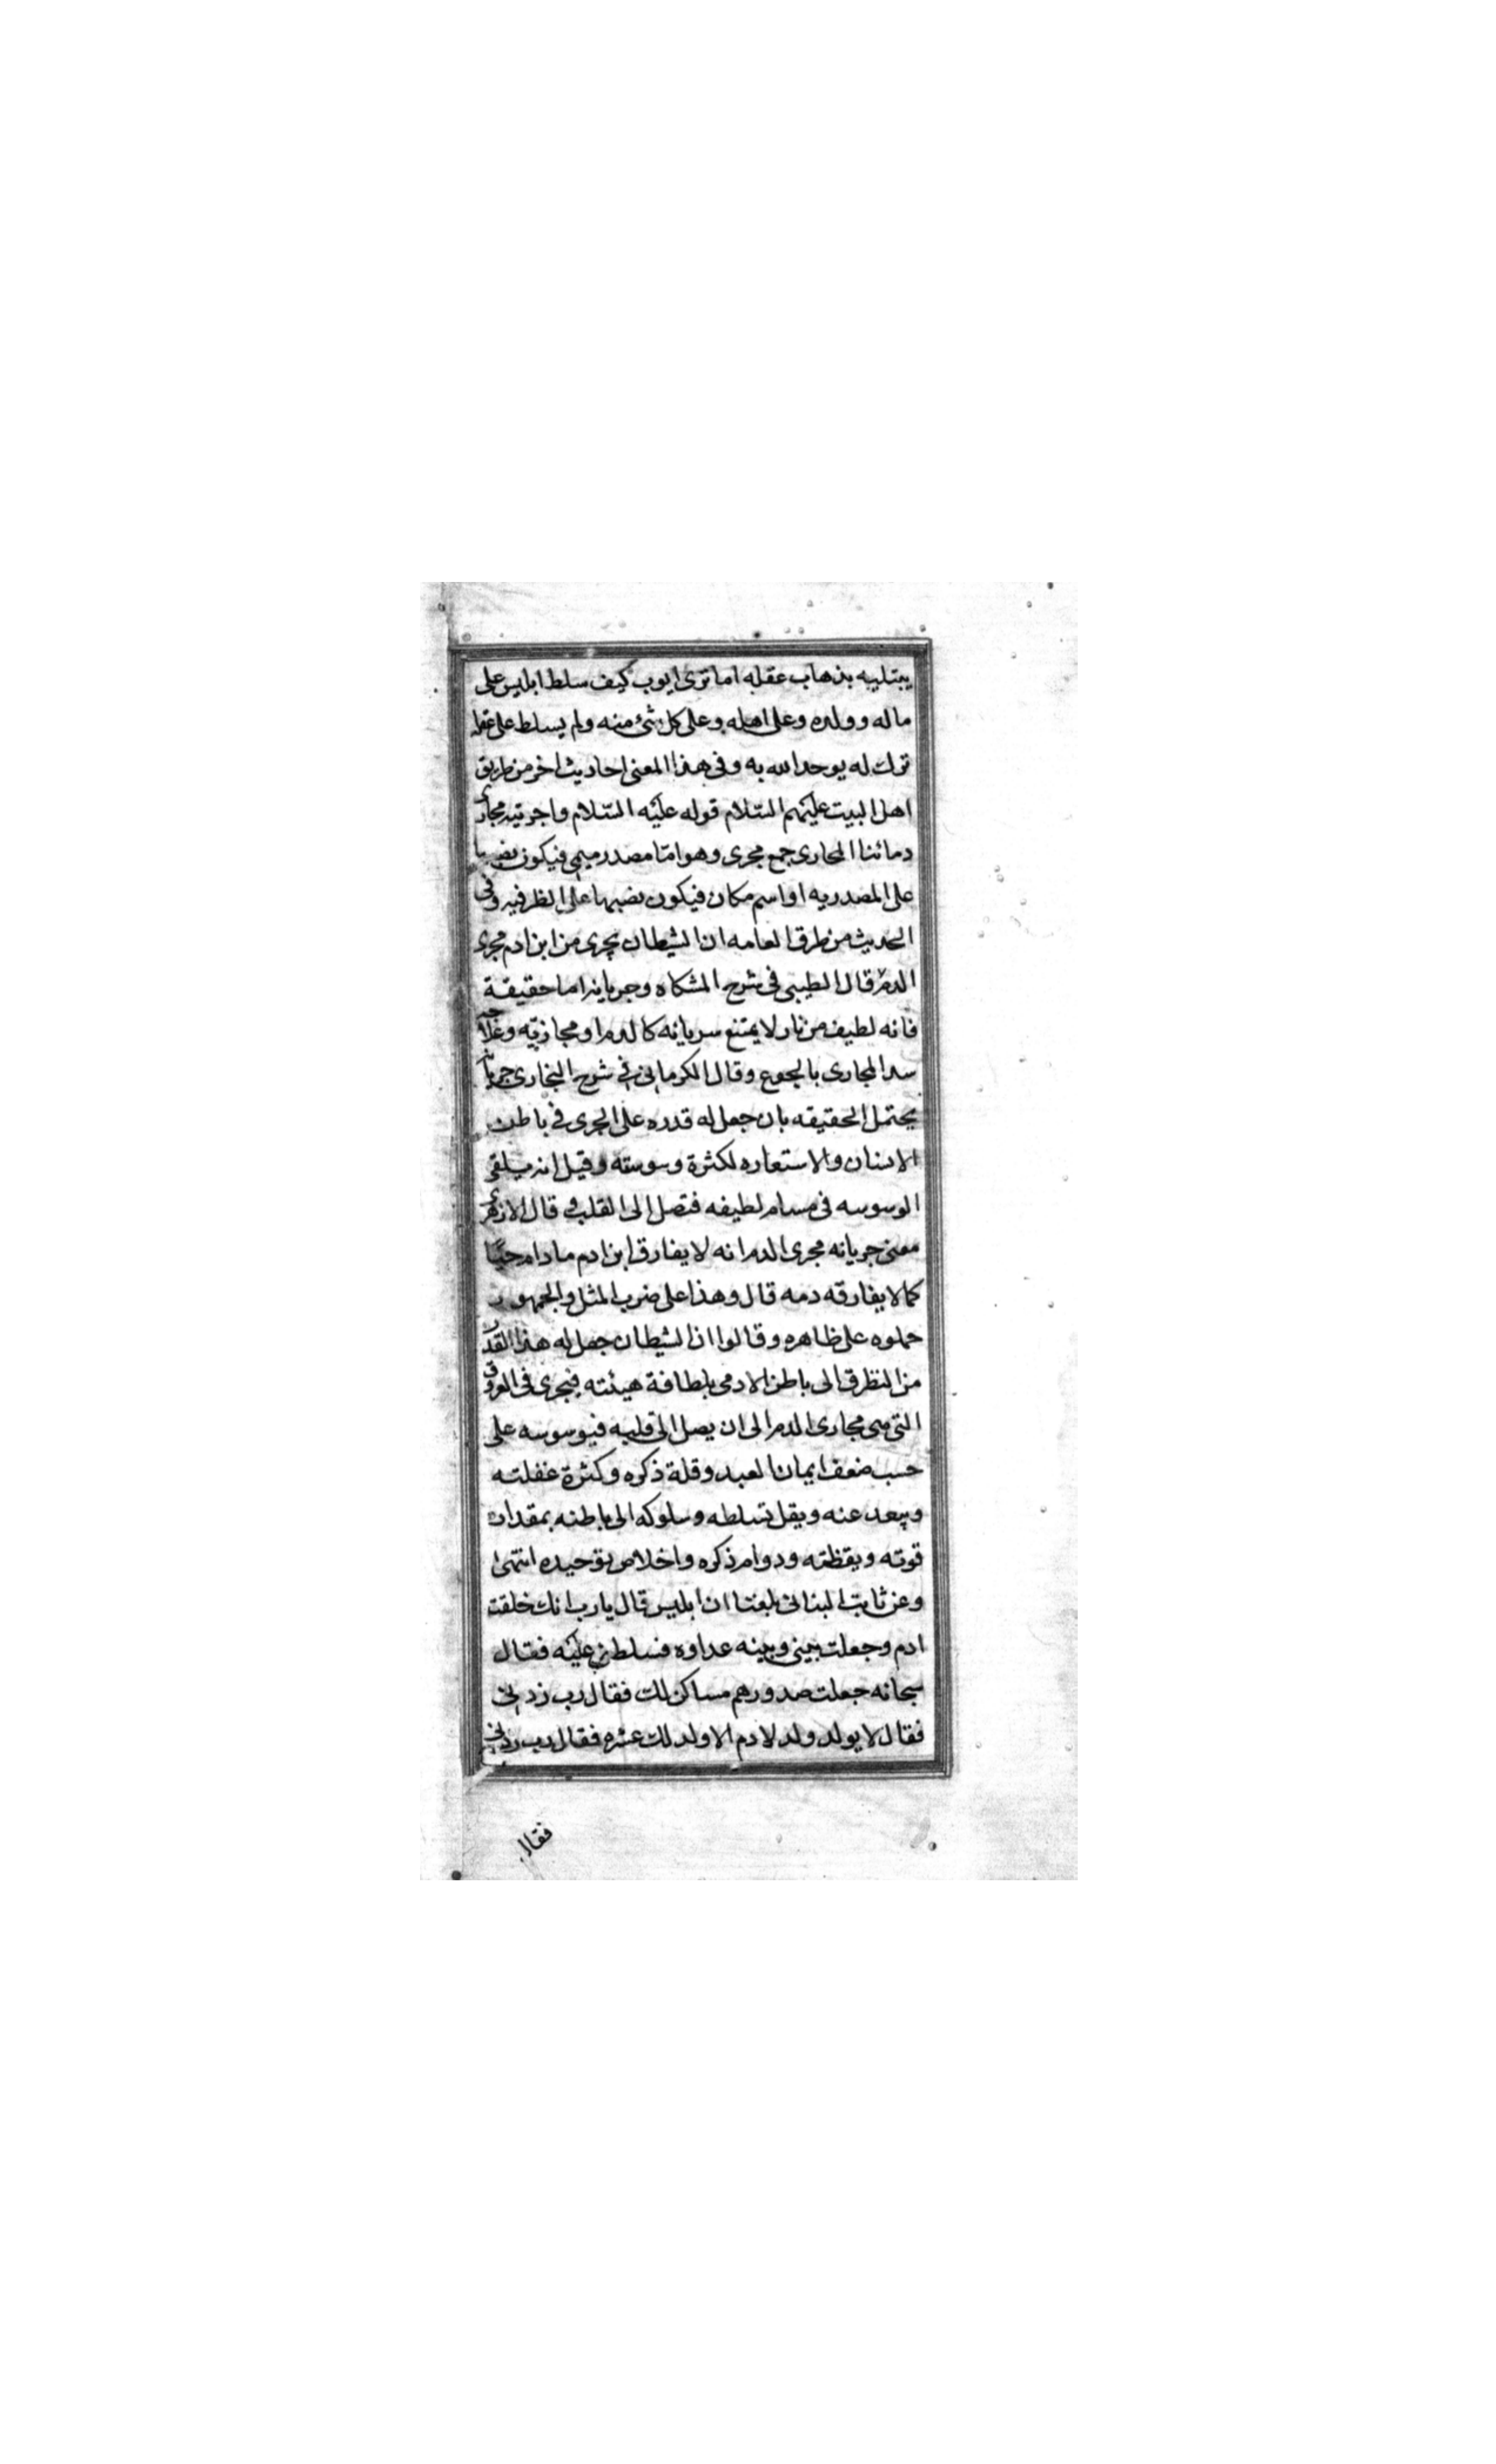 يبتليه بذهاب عقله اما ترى ايوب كيف سلط ابليس على
ماله وولده وعلى اهله وعلى كل شئ منه ولم يسلط على عقله
ترك له يوحد الله به وفى هذا المعنى احاديث اخر من طريق
اهل البيت عليهم السّلام قوله عليه السّلام واجريته مجارى
دمائنا المجارى جمع مجرى وهو امّا مصدر ميمى فيكون نصبها
على المصدريه او اسم مكان فيكون نصبها على الظرفيه وفى
الحديث من طرق العامه ان الشيطان يجرى من ابن ادم مجرى
الدم قال الطيبى فى شرح المشكاه وجريانه اما حقيقة
فانه لطيف من نار لا يمتنع سريانه كالدم او مجازيّه وعلاجه
سد المجارى بالجوع وقال الكرمانى فى شرح البخارى جريانه
يحتمل الحقيقه بان جعل له قدره على الجرى فى باطن
الانسان والاستعاره لكثرة وسوسته وقيل انه يلقى
الوسوسه فى مسام لطيفه فتصل الى القلب و قال الازهرى
معنى جريانه مجرى الدم انه لا يفارق ابن ادم ما دام حيًّا
كما لا يفارقه دمه قال وهذا على ضرب المثل والجمهور
حملوه على ظاهره وقالوا ان الشيطان جعل له هذا القدر
من التطرق الى باطن الادمى بلطافة هيئته فيجرى فى العروق
التى هى مجارى الدم الى ان يصل الى قلبه فيوسوسه على
حسب ضعف ايمان العبد وقلة ذكره وكثرة غفلته
ويبعد عنه ويقل تسلطه وسلوكه الى باطنه بمقدار
قوته ويقظته ودوام ذكره واخلاص توحيده انتهى
وعن ثابت البنانى بلغنا ان ابليس قال يا رب انك خلقت
ادم وجعلت بينى وبينه عداوه فسلطنى عليه فقال
سبحانه جعلت صدورهم مساكن لك فقال رب زدنى
فقال لا يولد ولد لادم الا ولد لك عشره فقال رب زدنى
فقال